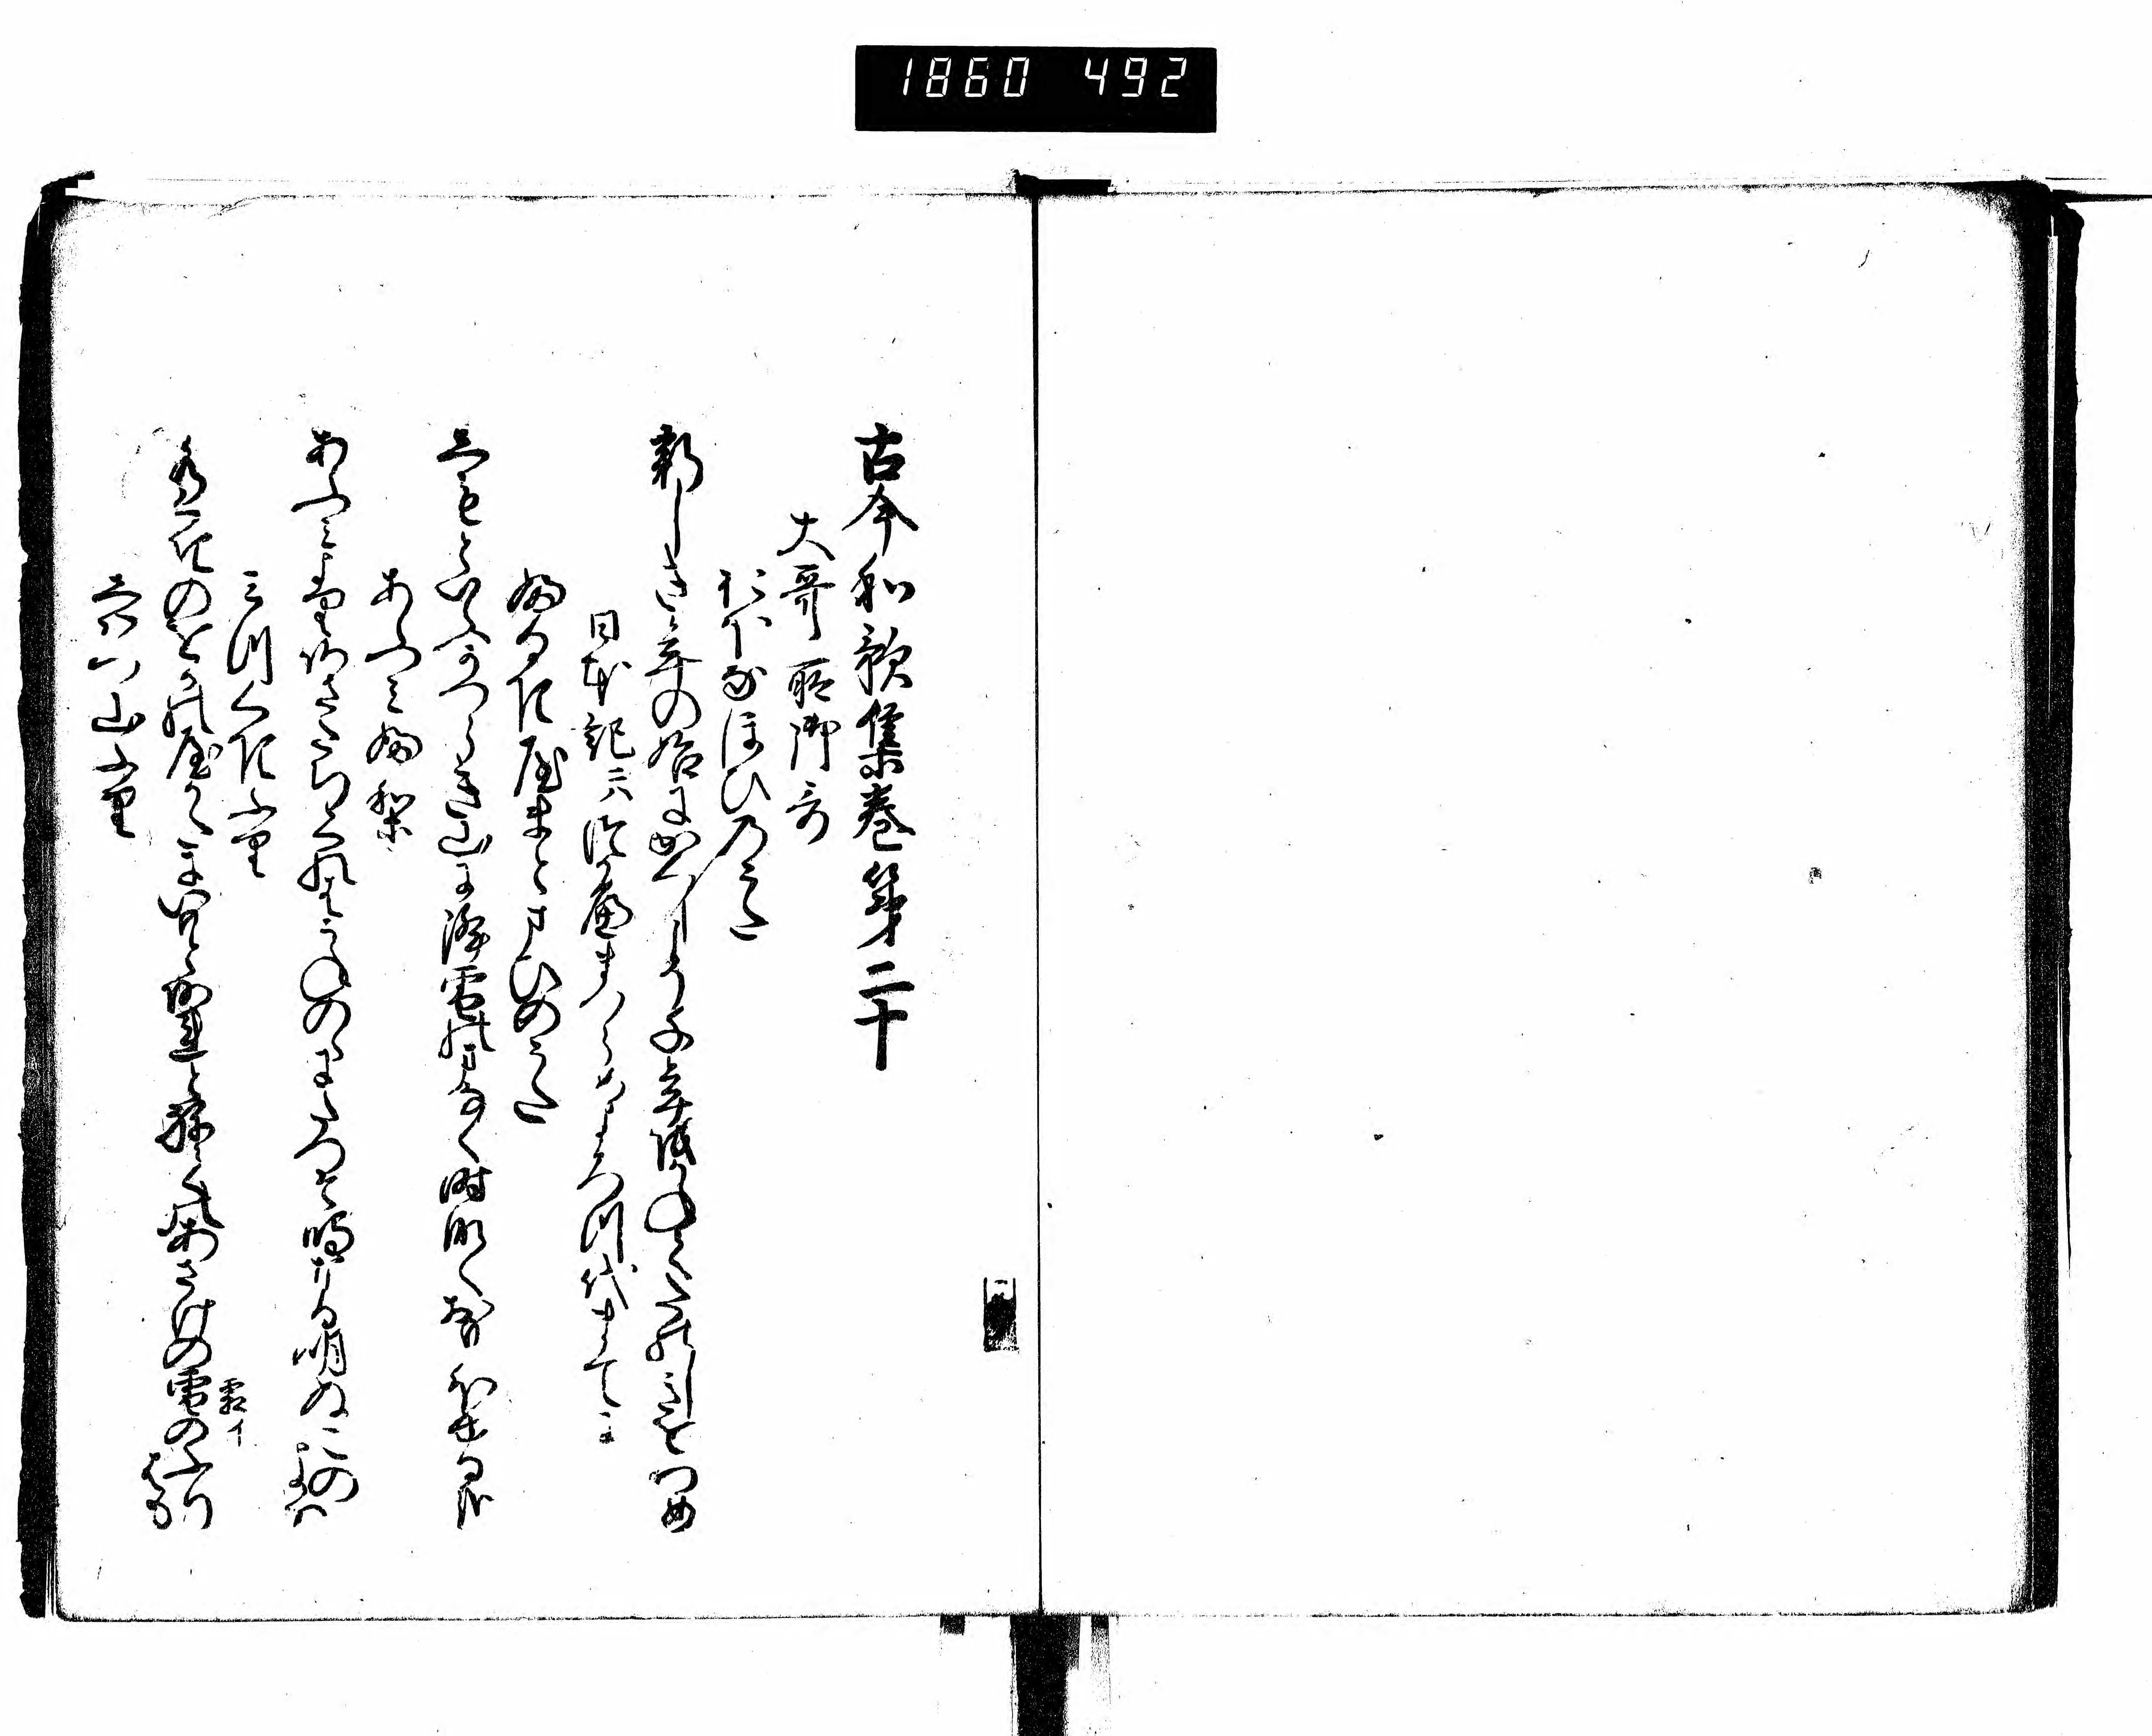 1860 492
古今和歌集巻第二十
大哥所御哥
おほなほひのうた
新しき年の始にかくしこそ千年をかねてたのしきをつめ
日本記ニハつかへまつらめよろつ代まてに
ふるきやまとまひのうた
しもとゆふかつらき山に降雪のまなく時なくおもほゆる哉
あふみふり
あふみより朝たちくれはうねの野にたつそ鳴なる明ぬこの
よは
みつくきふり
水くきのをかの屋かたにいもとあれとねての朝けの霜のふり
はも
雪イ
しはつ山ふり